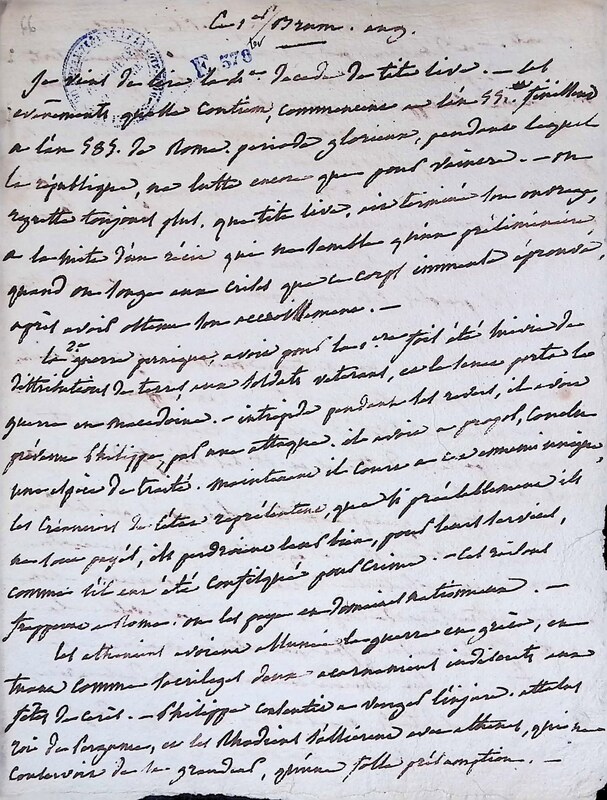 66
Ce 1er Brum. an 9.
E 378
Je viens de lire la 4e. decade de tite live. — Les
evènements quelle contien, commencene a l'an 552. finissene
a l'an 585. de Rome, periode glorieux, pendant lequel
la république, ne lutte encore que pour vaincre. — on
regrette toujours plus, que tite live, aie terminé son ouvrage,
a la suite d'un récit qui ne semble qu'un préliminaire,
quand on songe aux crises que ce corps immense éprouva,
après avoir obtenu son accroissemene. —
la 2e guerre punique, avoit pour la 1re fois été suivie de
distributions de terres aux soldats veterans, et le senat porta la
guerre en macedoine. — intrepide pendant les revers, il avoit
prévenu Philippe, par une attaque. il avoit a propos, conclu
une espèce de traité. maintenant il coure a
les créanciers de l'état représentene, que si préalablemene ils
ne sont payés, ils perdroient leurs bien, pour leurs services,
comme s'il eut été confisqué pour crime. — Ces raisons
frappent a Rome. on les paye en domaines nationaux. —
les atheniens avoient allumé la guerre en grèce, en
tuant comme sacrileges deux acarnaniens indiscrets aux
fêtes de cerès. — Philippe consentit a vanger l'injure. attalus
roi de Pergame, et les Rhodiens s'allierent avec athenes, qui ne
conservoit de sa grandeur, qu'une folle présomption. —